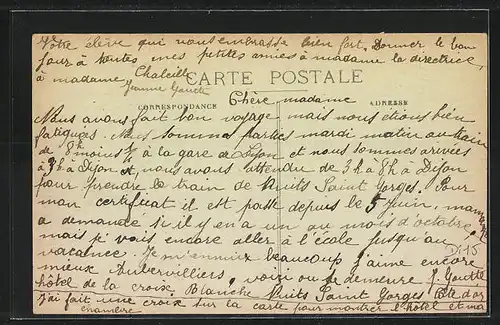 Votre élève qui vous embrasse bien fort. Donner le bon
jour à toutes mes petites amies à madame la directrice,
à madame Chaleil
Jeanne Goutte
CARTE POSTALE
CORRESPONDANCE
ADRESSE
Chère madame
Nous avons fait bon voyage mais nous etions bien
fatiguées. Nous sommes parties mardi matin au train
de 8h moins ¼ à la gare de Lyon et nous sommes arrivées
à 3h à Dijon et nous avons attendu de 3h à 8h à Dijon
pour prendre le train de Nuits Saint Gorges. Pour
mon certificat il est passé depuis le 5 juin, maman
a demandé si il y en a un au mois d'octobre
mais je vais encore aller à l'école jusqu'au
vacance. Je m'ennuix beaucoup j'aime encore
mieux Aubervilliers, voix ou je demeure J. Goutte
hôtel de la croix Blanche Nuits Saint Gorges Côte d'or
J'ai fait une croix sur la carte pour montrer l'hôtel et ma
chambre